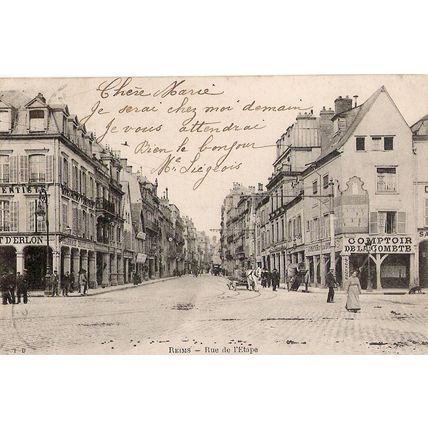 Chère Marie
Je serai chez moi demain
Je vous attendrai
Bien le bonjour
M. Liégeois
DENTISTE
T D'ERLON
COMPTOIR
DE LA COMÈTE
REIMS — Rue de l'Etape